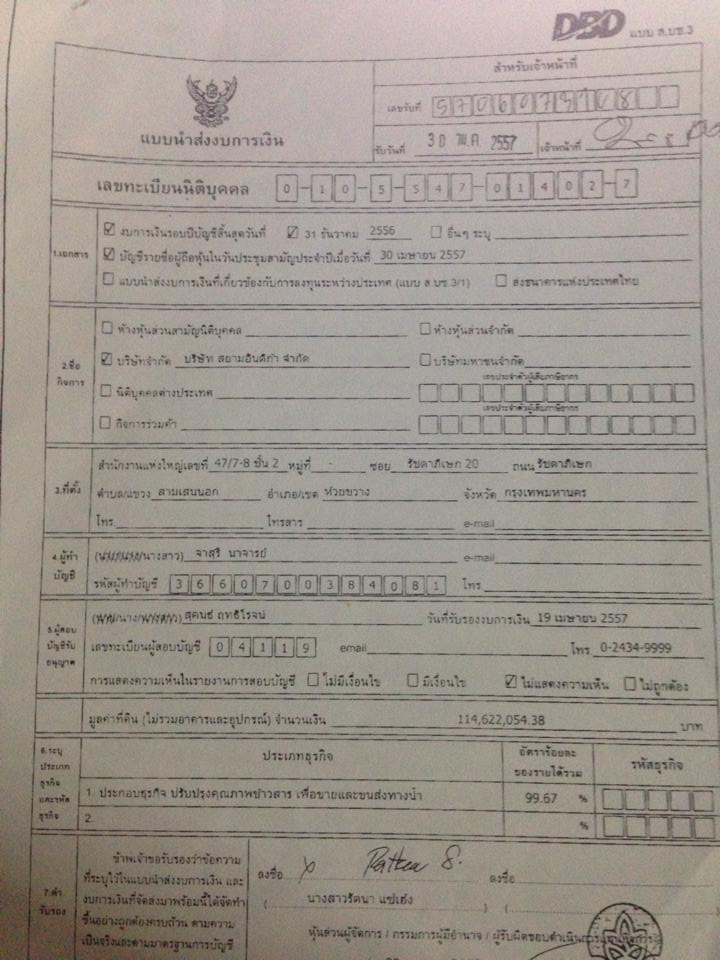 DBD แบบ ส.บช.3
สำหรับเจ้าหน้าที่
แบบนำส่งงบการเงิน
เลขรับที่
รับวันที่ 30 พ.ค. 2557 เจ้าหน้าที่
เลขทะเบียนนิติบุคคล 0-10-5-547-01402-7
1.เอกสาร
งบการเงินรอบปีบัญชีสิ้นสุดวันที่ 31 ธันวาคม 2556 อื่นๆ ระบุ
บัญชีรายชื่อผู้ถือหุ้นในวันประชุมสามัญประจำปีเมื่อวันที่ 30 เมษายน 2557
แบบนำส่งงบการเงินที่เกี่ยวข้องกับการลงทุนระหว่างประเทศ (แบบ ส.บช.3/1) ส่งธนาคารแห่งประเทศไทย
2.ชื่อกิจการ
ห้างหุ้นส่วนสามัญนิติบุคคล ห้างหุ้นส่วนจำกัด
บริษัทจำกัด บริษัท สยามอินดิก้า จำกัด บริษัทมหาชนจำกัด
เลขประจำตัวผู้เสียภาษีอากร
นิติบุคคลต่างประเทศ
เลขประจำตัวผู้เสียภาษีอากร
กิจการร่วมค้า
3.ที่ตั้ง
สำนักงานแห่งใหญ่เลขที่ 47/7-8 ชั้น 2 หมู่ที่ - ซอย รัชดาภิเษก 20 ถนน รัชดาภิเษก
ตำบล/แขวง สามเสนนอก อำเภอ/เขต ห้วยขวาง จังหวัด กรุงเทพมหานคร
โทร. โทรสาร e-mail
4.ผู้ทำบัญชี
(นาย/นาง/นางสาว) จาสุรี นาจารย์ e-mail
รหัสผู้ทำบัญชี 3660700384081 โทร
5.ผู้สอบบัญชีรับอนุญาต
(นาย/นาง/นางสาว) สุคนธ์ ฤทธิโรจน์ วันที่รับรองงบการเงิน 19 เมษายน 2557
เลขทะเบียนผู้สอบบัญชี 04119 email โทร 0-2434-9999
การแสดงความเห็นในรายงานการสอบบัญชี ไม่มีเงื่อนไข มีเงื่อนไข ไม่แสดงความเห็น ไม่ถูกต้อง
มูลค่าที่ดิน (ไม่รวมอาคารและอุปกรณ์) จำนวนเงิน 114,622,054.38 บาท
6.ระบุประเภทธุรกิจและรหัสธุรกิจ
ประเภทธุรกิจ อัตราร้อยละของรายได้รวม รหัสธุรกิจ
1. ประกอบธุรกิจ ปรับปรุงคุณภาพข้าวสาร เพื่อขายและขนส่งทางน้ำ 99.67 %
2. %
7.คำรับรอง
ข้าพเจ้าขอรับรองว่าข้อความ
ที่ระบุไว้ในแบบนำส่งงบการเงิน และ
งบการเงินที่จัดส่งมาพร้อมนี้ได้จัดทำ
ขึ้นอย่างถูกต้องครบถ้วน ตามความ
เป็นจริงและตามมาตรฐานการบัญชี
ลงชื่อ x Rattna S. ลงชื่อ
(นางสาวรัตนา แซ่เฮ้ง) (
หุ้นส่วนผู้จัดการ / กรรมการผู้มีอำนาจ / ผู้รับผิดชอบดำเนินการ